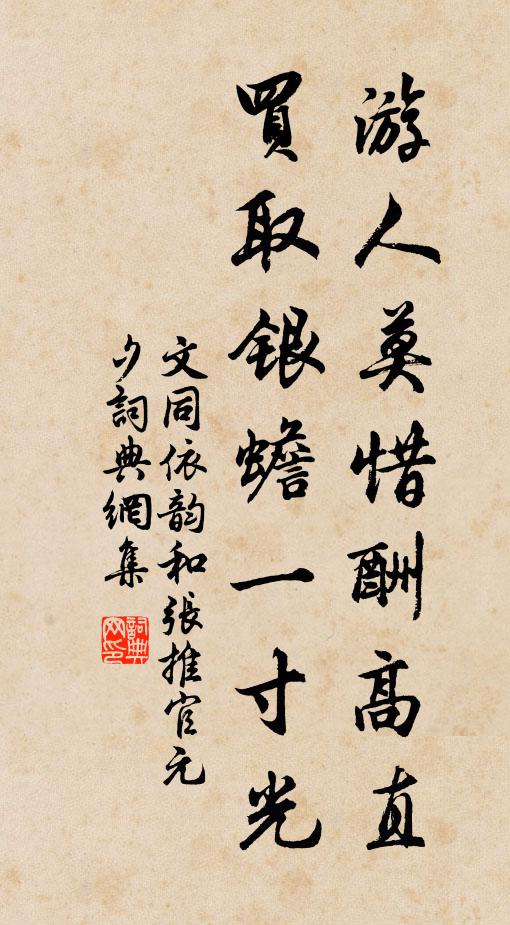 游人莫惜酬高直
買取銀蟾一寸光
文同依韵和張推官元
夕詞典網集
詞典
网印